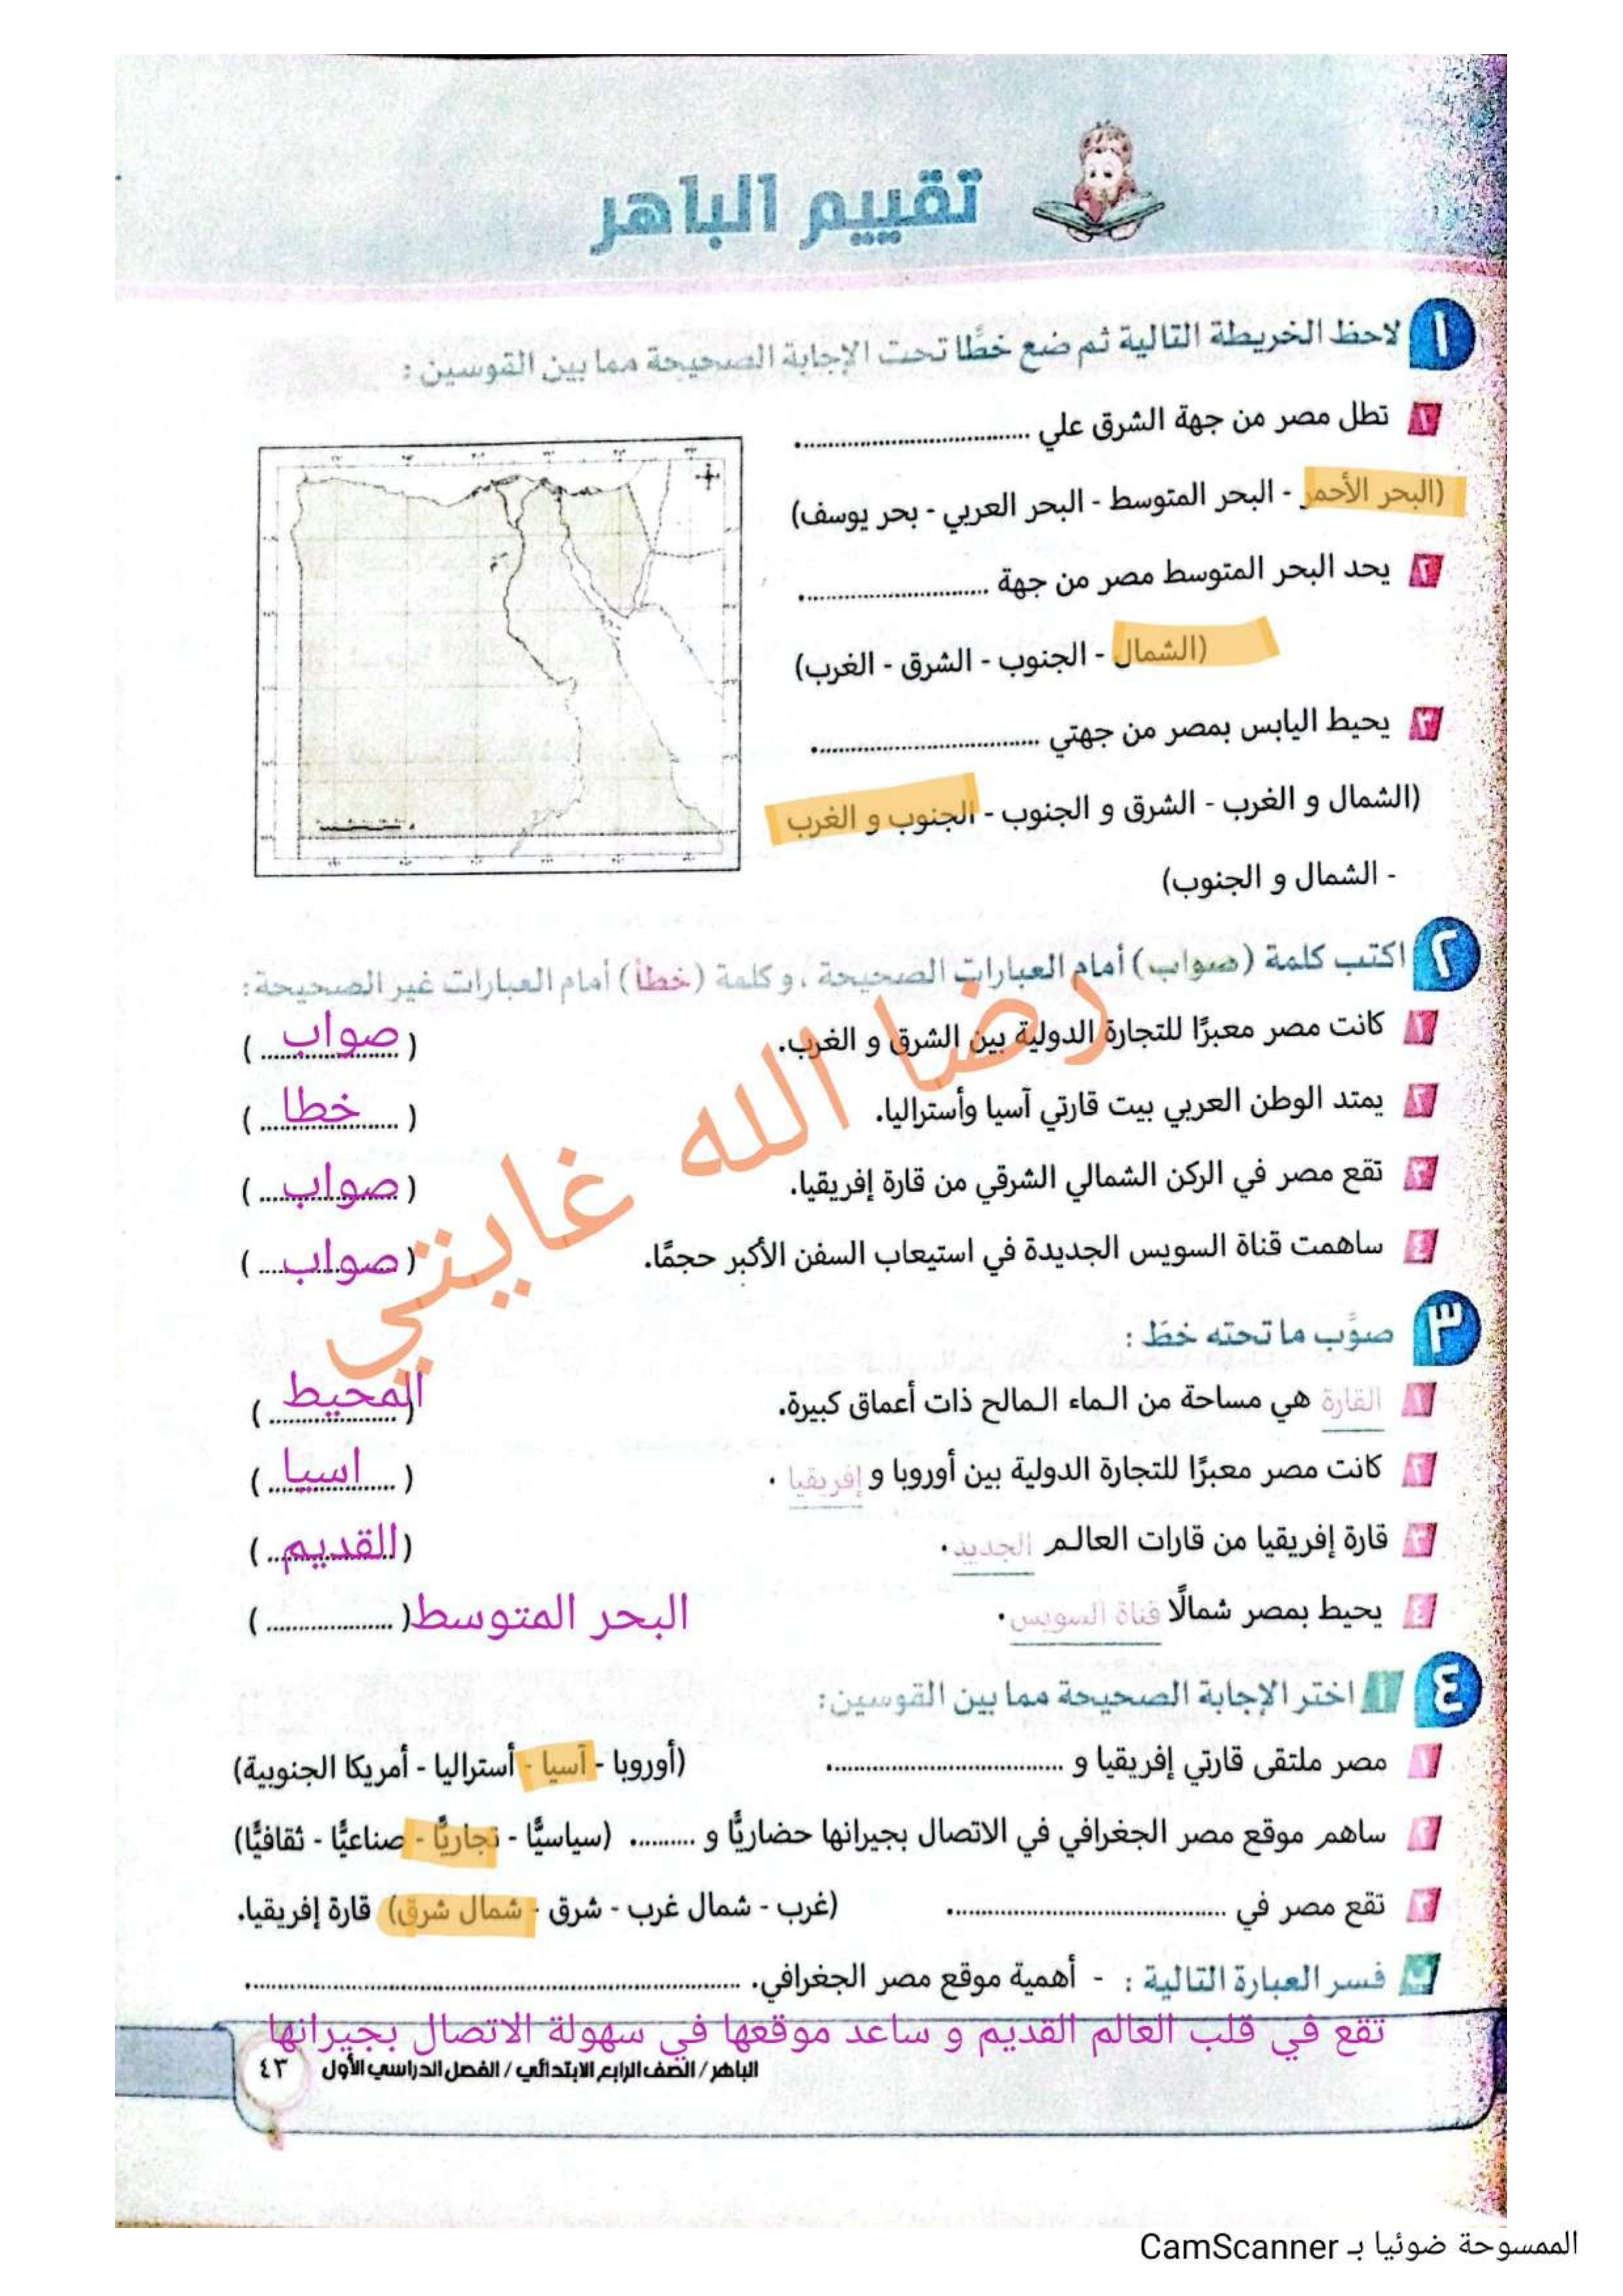 تقييم الباهر
١ لاحظ الخريطة التالية ثم ضع خطًا تحت الإجابة الصحيحة مما بين القوسين :
١ تطل مصر من جهة الشرق علي ................................
(البحر الأحمر - البحر المتوسط - البحر العربي - بحر يوسف)
٢ يحد البحر المتوسط مصر من جهة ..........................
(الشمال - الجنوب - الشرق - الغرب)
٣ يحيط اليابس بمصر من جهتي ...............................
(الشمال و الغرب - الشرق و الجنوب - الجنوب و الغرب
- الشمال و الجنوب)
٢ اكتب كلمة (صواب) أمام العبارات الصحيحة ، و كلمة (خطأ) أمام العبارات غير الصحيحة:
١ كانت مصر معبرًا للتجارة الدولية بين الشرق و الغرب. (صواب)
٢ يمتد الوطن العربي بيت قارتي آسيا وأستراليا. (خطا)
٣ تقع مصر في الركن الشمالي الشرقي من قارة إفريقيا. (صواب)
٤ ساهمت قناة السويس الجديدة في استيعاب السفن الأكبر حجمًا. (صواب)
رضا الله غايتي
٣ صوِّب ما تحته خط :
١ القارة هي مساحة من الماء المالح ذات أعماق كبيرة. (المحيط)
٢ كانت مصر معبرًا للتجارة الدولية بين أوروبا و إفريقيا . (اسيا)
٣ قارة إفريقيا من قارات العالم الجديد. (القديم)
٤ يحيط بمصر شمالًا قناة السويس. البحر المتوسط(...................)
٤ أ اختر الإجابة الصحيحة مما بين القوسين:
١ مصر ملتقى قارتي إفريقيا و ................................. (أوروبا - آسيا - أستراليا - أمريكا الجنوبية)
٢ ساهم موقع مصر الجغرافي في الاتصال بجيرانها حضاريًّا و .......... (سياسيًّا - تجاريًّا - صناعيًّا - ثقافيًّا)
٣ تقع مصر في ....................................... (غرب - شمال غرب - شرق - شمال شرق) قارة إفريقيا.
ب فسر العبارة التالية : - أهمية موقع مصر الجغرافي. ......................................................................
تقع في قلب العالم القديم و ساعد موقعها في سهولة الاتصال بجيرانها
الباهر / الصف الرابع الابتدائي / الفصل الدراسي الأول ٤٣
الممسوحة ضوئيا بـ CamScanner